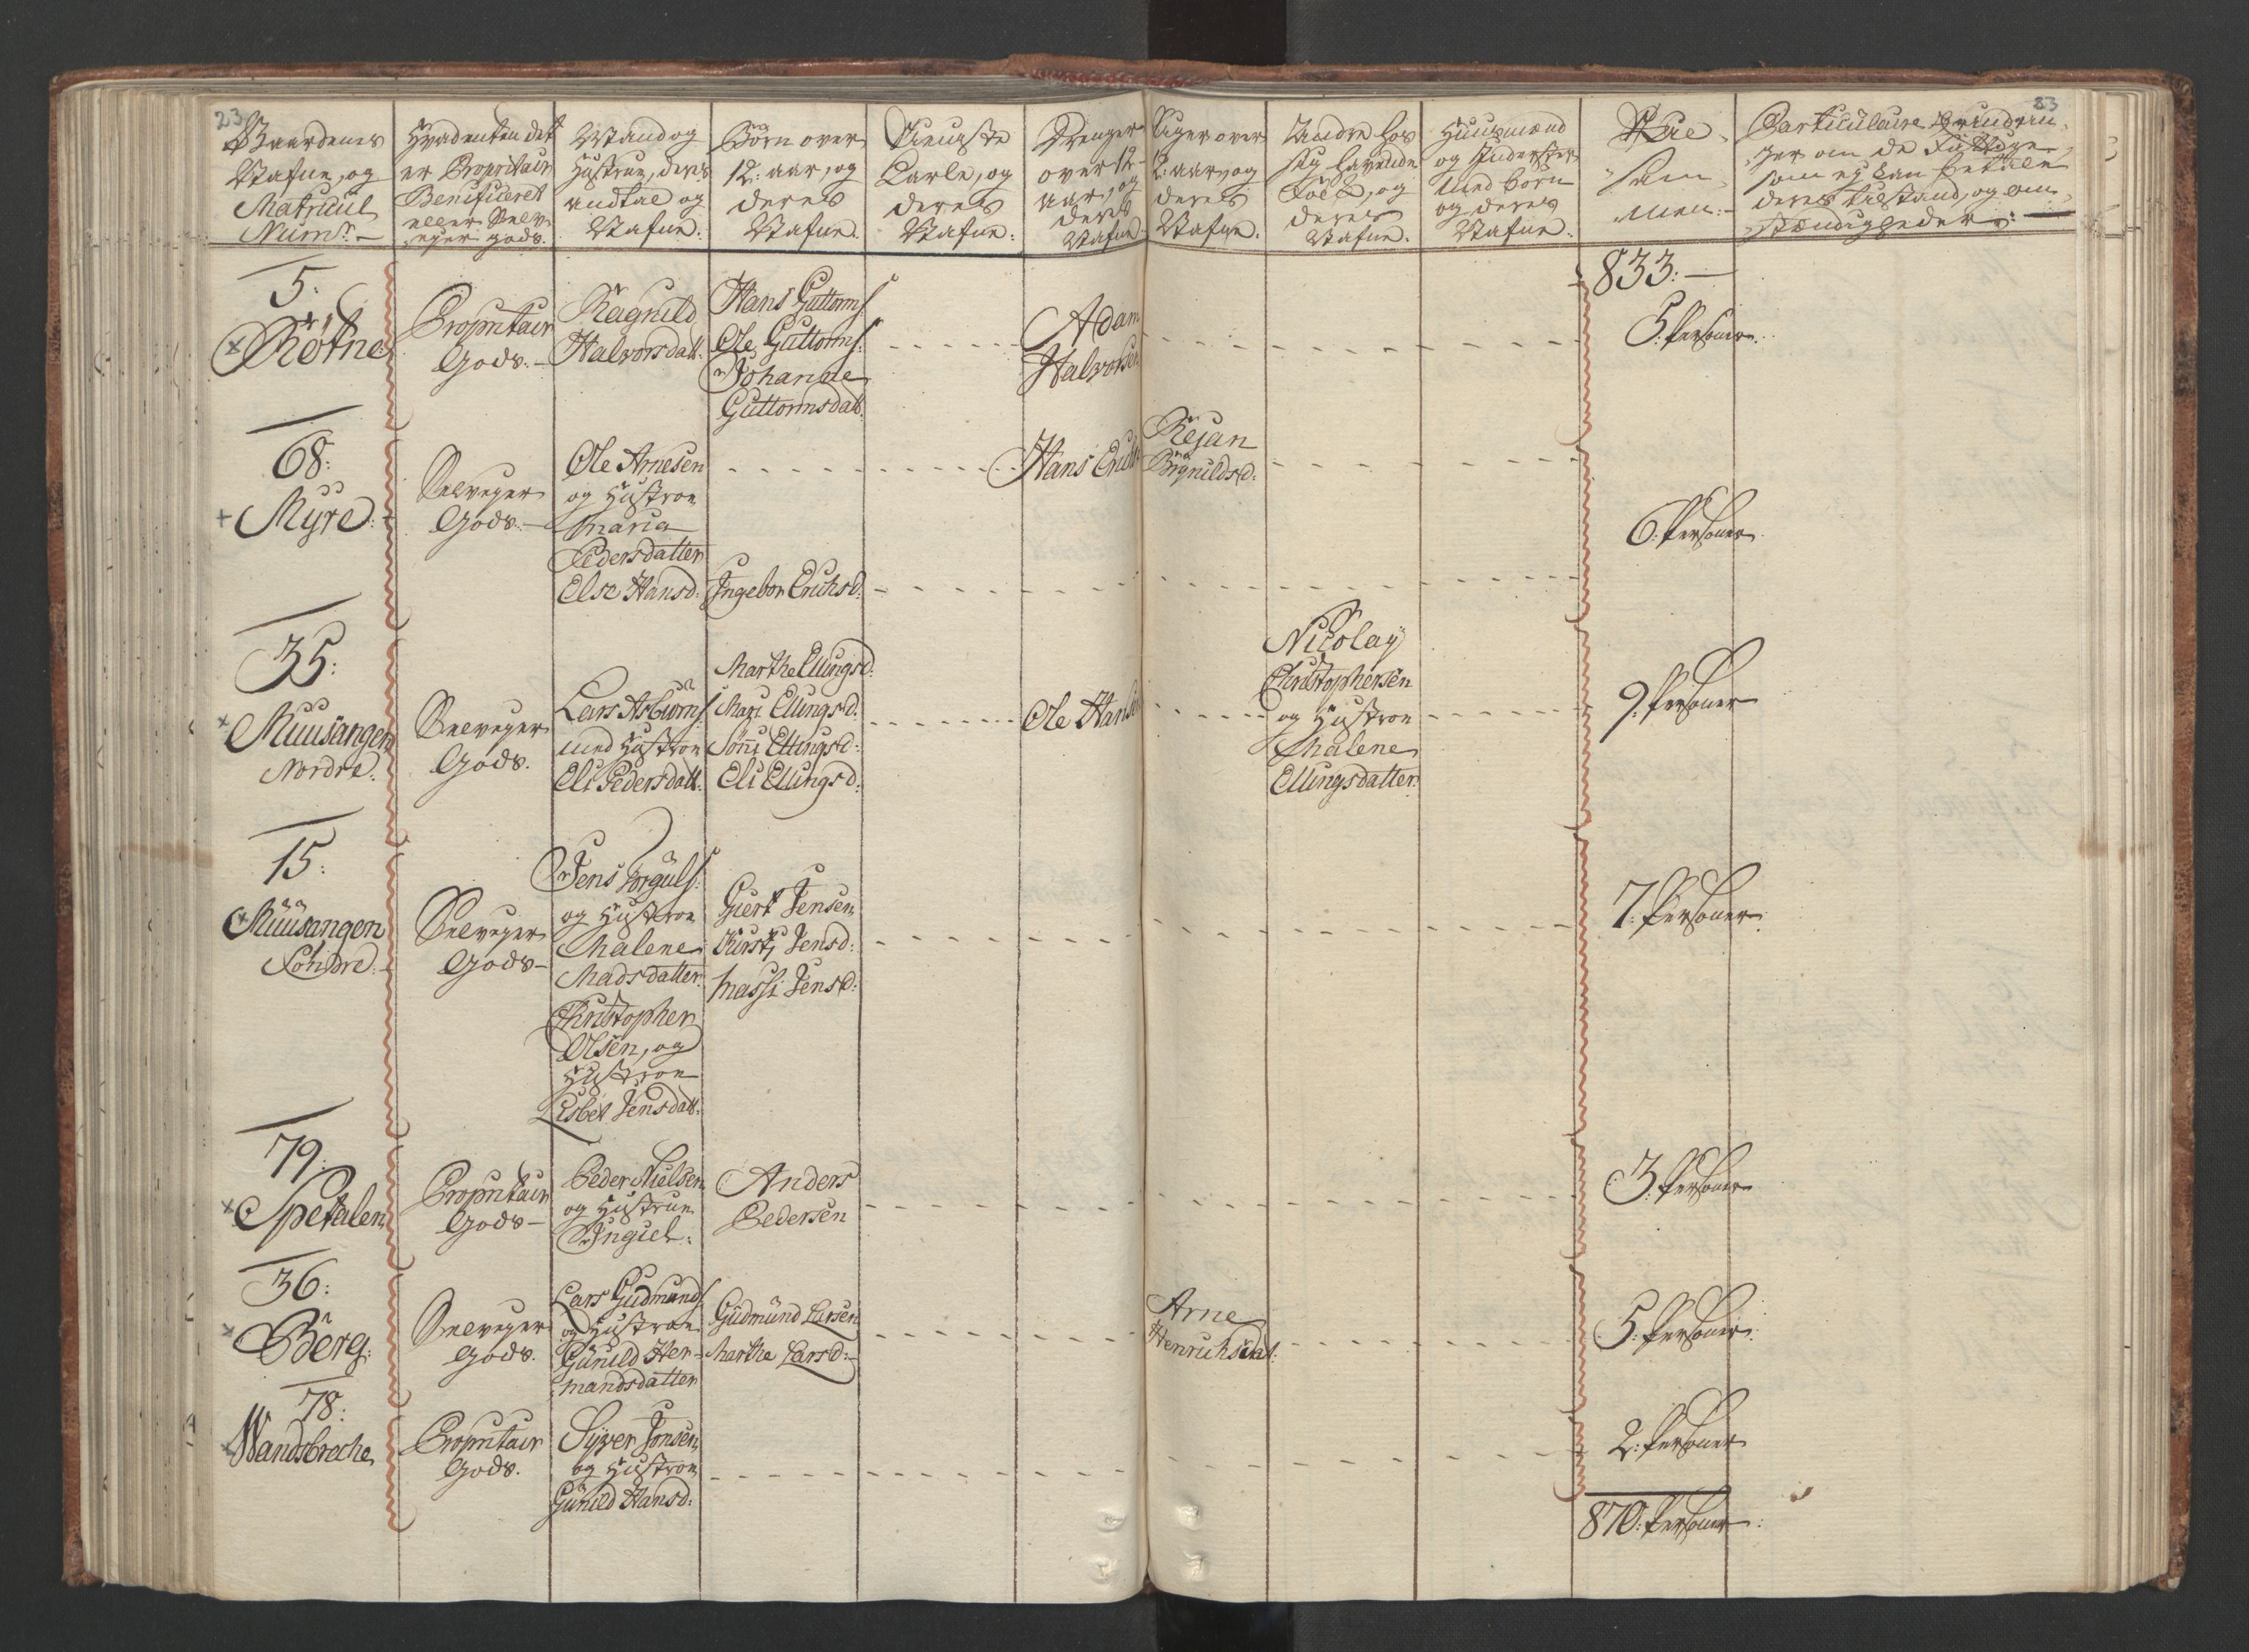 23
83
Gaardenes
Nafne, og
Matricul
Numr. —
Hvad enten det
er Propritair
Benificeret
eller Selv-
eyer gods.
Mand og
Hustrue, deres
andtal og
Nafne.
Börn over
12: aar, og
deres
Nafne.
Tieniste
Karle, og
deres
Nafne:
Drenger
over 12
aar, og
deres
Nafne
Piger over
12: aar, og
deres
Nafne.
Andre hos
sig havende
Folk, og
deres
Nafne.
Huusmænd
og Inderster
med börn
og deres
Nafne:
Til
sam-
men:
Particulaire
om de Fattige
som ej kan betale
deres tilstand, og om-
stændigheder:
833: —
5:
Rötne
Propritair
Gods. —
Ragnild
Halvorsdatt:
Hans Guttorms:
Ole Guttorms:
Johanne
Guttormsdat:
Adam
Halvorsen
5: Personer.
68:
Myre:
Selveyer
Gods. —
Ole Arnesen
og Hustroe
Maria
Pedersdatter
Else Hansd:
Ingebor Erichsd:
Hans Erichs
Rejan
Brynildsd:
6: Personer.
35:
Muusangen
Nordre.
Selveyer
Gods.
Lars Asbiörns:
med Hustroe
Eli Pedersdatt:
Marthe Ellingsd:
Mari Ellingsd:
Sönni Ellingsd:
Eli Ellingsd:
Ole Hansen
Nicolay
Christophersen
og Hustroe
Malene
Ellingsdatter:
9: Personer
15:
Muusangen
Söndre. —
Selveyer
Gods —
Jens Torguls:
og Hustroe
Malene
Madsdatter:
Christopher
Olsen, og
Hustroe
Lisbet Jensdatt:
Giert Jensen
Kirsti Jensd:
Massi Jensd:
7: Personer:
79:
Spetalen
Propritair
Gods —
Peder Nielsen
og Hustrue
Ingiel:
Anders
Pedersen
3: Personer
36:
Berg:
Selveyer
Gods.
Lars Gudmunds:
og Hustroe
Gunild Her-
mandsdatter
Gudmund Larsen
Marthe Larsd: —
Arne
Henrichsdat:
5: Personer:
78:
Wandsbreche
Propritair
Gods.
Syver Jonsen
og Hustroe
Gunild Hansd:
2: Personer
870: Personer: